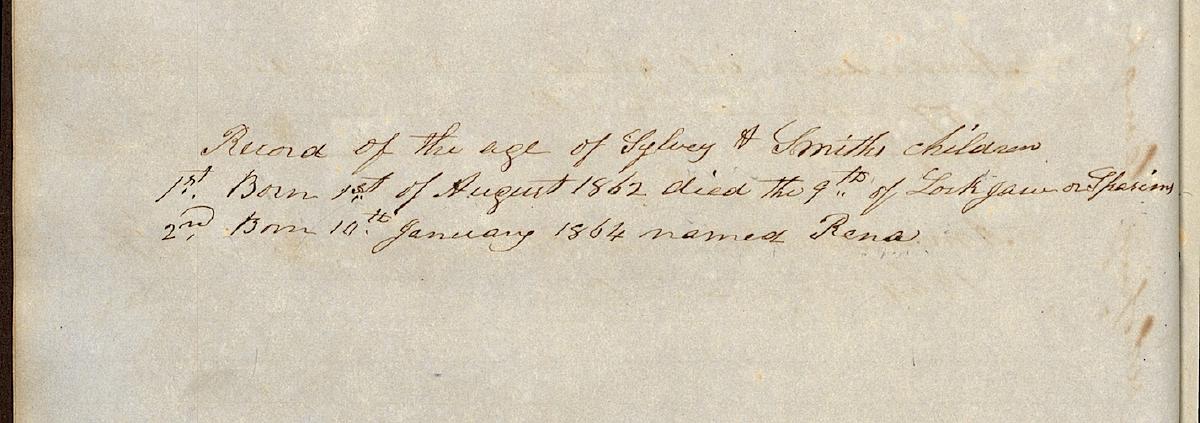 Record of the age of Sylvey & Smiths children
1st. Born 1st of August 1862 died the 9th of Lockjaw or Spasims
2nd Born 10th January 1864 named Rena